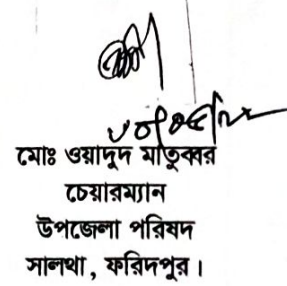 মোঃ ওয়াদুদ মাতুব্বর
চেয়ারম্যান
উপজেলা পরিষদ
সালথা, ফরিদপুর।